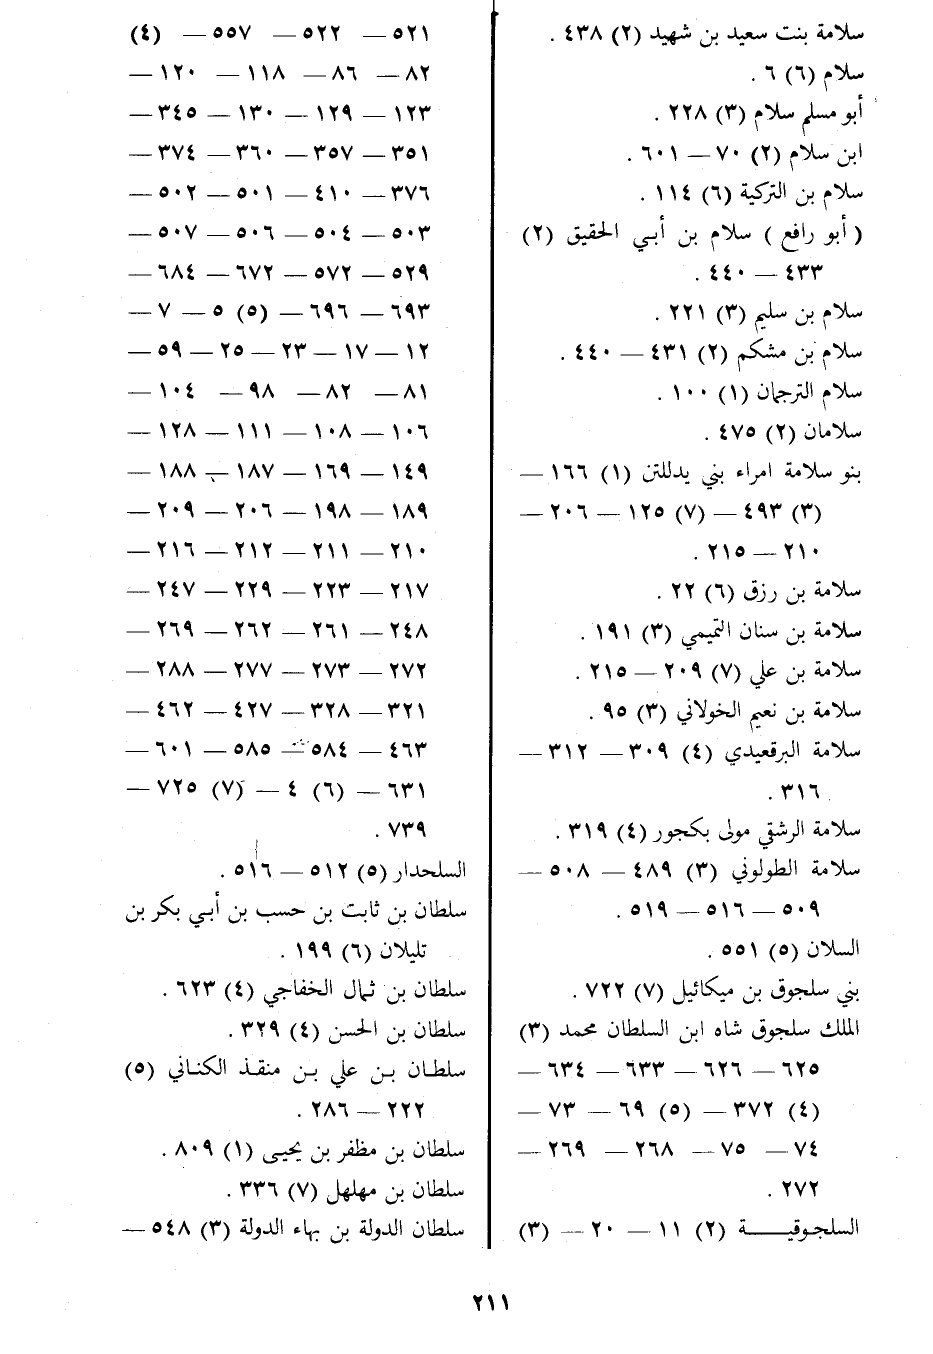 سلامة بنت سعيد بن شهيد (٢) ٤٣٨ .
سلام (٦) ٦ .
أبو مسلم سلام (٣) ٢٢٨ .
ابن سلام (٢) ٧٠ — ٦٠١ .
سلام بن التركية (٦) ١١٤ .
( أبو رافع ) سلام بن أبي الحقيق (٢)
٤٣٣ — ٤٤٠ .
سلام بن سليم (٣) ٢٢١ .
سلام بن مشكم (٢) ٤٣١ — ٤٤٠ .
سلام الترجمان (١) ١٠٠ .
سلامان (٢) ٤٧٥ .
بنو سلامة امراء بني يدللتن (١) ١٦٦ —
(٣) ٤٩٣ — (٧) ١٢٥ — ٢٠٦ —
٢١٠ — ٢١٥ .
سلامة بن رزق (٦) ٢٢ .
سلامة بن سنان التميمي (٣) ١٩١ .
سلامة بن علي (٧) ٢٠٩ — ٢١٥ .
سلامة بن نعيم الخولاني (٣) ٩٥ .
سلامة البرقعيدي (٤) ٣٠٩ — ٣١٢ —
٣١٦ .
سلامة الرشقي مولى بكجور (٤) ٣١٩ .
سلامة الطولوني (٣) ٤٨٩ — ٥٠٨ —
٥٠٩ — ٥١٦ — ٥١٩ .
السلان (٥) ٥٥١ .
بني سلجوق بن ميكائيل (٧) ٧٢٢ .
الملك سلجوق شاه ابن السلطان محمد (٣)
٦٢٥ — ٦٢٦ — ٦٣٣ — ٦٣٤ —
(٤) ٣٧٢ — (٥) ٦٩ — ٧٣ —
٧٤ — ٧٥ — ٢٦٨ — ٢٦٩ —
٢٧٢ .
السلجوقيـــة (٢) ١١ — ٢٠ — (٣)
٥٢١ — ٥٢٢ — ٥٥٧ — (٤)
٨٢ — ٨٦ — ١١٨ — ١٢٠ —
١٢٣ — ١٢٩ — ١٣٠ — ٣٤٥ —
٣٥١ — ٣٥٧ — ٣٦٠ — ٣٧٤ —
٣٧٦ — ٤١٠ — ٥٠١ — ٥٠٢ —
٥٠٣ — ٥٠٤ — ٥٠٦ — ٥٠٧ —
٥٢٩ — ٥٧٢ — ٦٧٢ — ٦٨٤ —
٦٩٣ — ٦٩٦ — (٥) ٥ — ٧ —
١٢ — ١٧ — ٢٣ — ٢٥ — ٥٩ —
٨١ — ٨٢ — ٩٨ — ١٠٤ —
١٠٦ — ١٠٨ — ١١١ — ١٢٨ —
١٤٩ — ١٦٩ — ١٨٧ — ١٨٨ —
١٨٩ — ١٩٨ — ٢٠٦ — ٢٠٩ —
٢١٠ — ٢١١ — ٢١٢ — ٢١٦ —
٢١٧ — ٢٢٣ — ٢٢٩ — ٢٤٧ —
٢٤٨ — ٢٦١ — ٢٦٢ — ٢٦٩ —
٢٧٢ — ٢٧٣ — ٢٧٧ — ٢٨٨ —
٣٢١ — ٣٢٨ — ٤٢٧ — ٤٦٢ —
٤٦٣ — ٥٨٤ — ٥٨٥ — ٦٠١ —
٦٣١ — (٦) ٤ — (٧) ٧٢٥ —
٧٣٩ .
السلحدار (٥) ٥١٢ — ٥١٦ .
سلطان بن ثابت بن حسب بن أبي بكر بن
تليلان (٦) ١٩٩ .
سلطان بن ثمال الخفاجي (٤) ٦٢٣ .
سلطان بن الحسن (٤) ٣٢٩ .
سلطان بن علي بن منقذ الكناني (٥)
٢٢٢ — ٢٨٦ .
سلطان بن مظفر بن يحيى (١) ٨٠٩ .
سلطان بن مهلهل (٧) ٣٣٦ .
سلطان الدولة بن بهاء الدولة (٣) ٥٤٨ —
٢١١